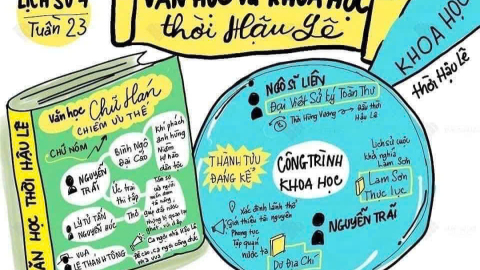 LỊCH SỬ 4
Tuần 23
VĂN HỌC VÀ KHOA HỌC
thời Hậu Lê
KHOA HỌC
thời Hậu Lê
VĂN HỌC THỜI HẬU LÊ
Văn học Chữ Hán
CHIẾM ƯU THẾ
CHỮ NÔM
NGUYỄN TRÃI
Bình Ngô Đại Cáo
Khí phách anh hùng
Niềm tự hào dân tộc
Ức trai thi tập
LÝ TỬ TẤN
NGUYỄN HÚC
THƠ
VUA
LÊ THÁNH TÔNG
Ca ngợi nhà Hậu Lê
Đề cao, ca ngợi công đức nhà vua
NGÔ SĨ LIÊN
Đại Việt Sử ký Toàn Thư
Thời Hùng Vương
Đầu thời Hậu Lê
THÀNH TỰU
ĐÁNG KỂ
CÔNG TRÌNH
KHOA HỌC
Lịch sử cuộc
khởi nghĩa
Lam Sơn
Lam Sơn
Thực lục
NGUYỄN TRÃI
Xác định lãnh thổ
Giới thiệu tài nguyên
Phong tục
Tập quán
nước ta
Dư Địa Chí